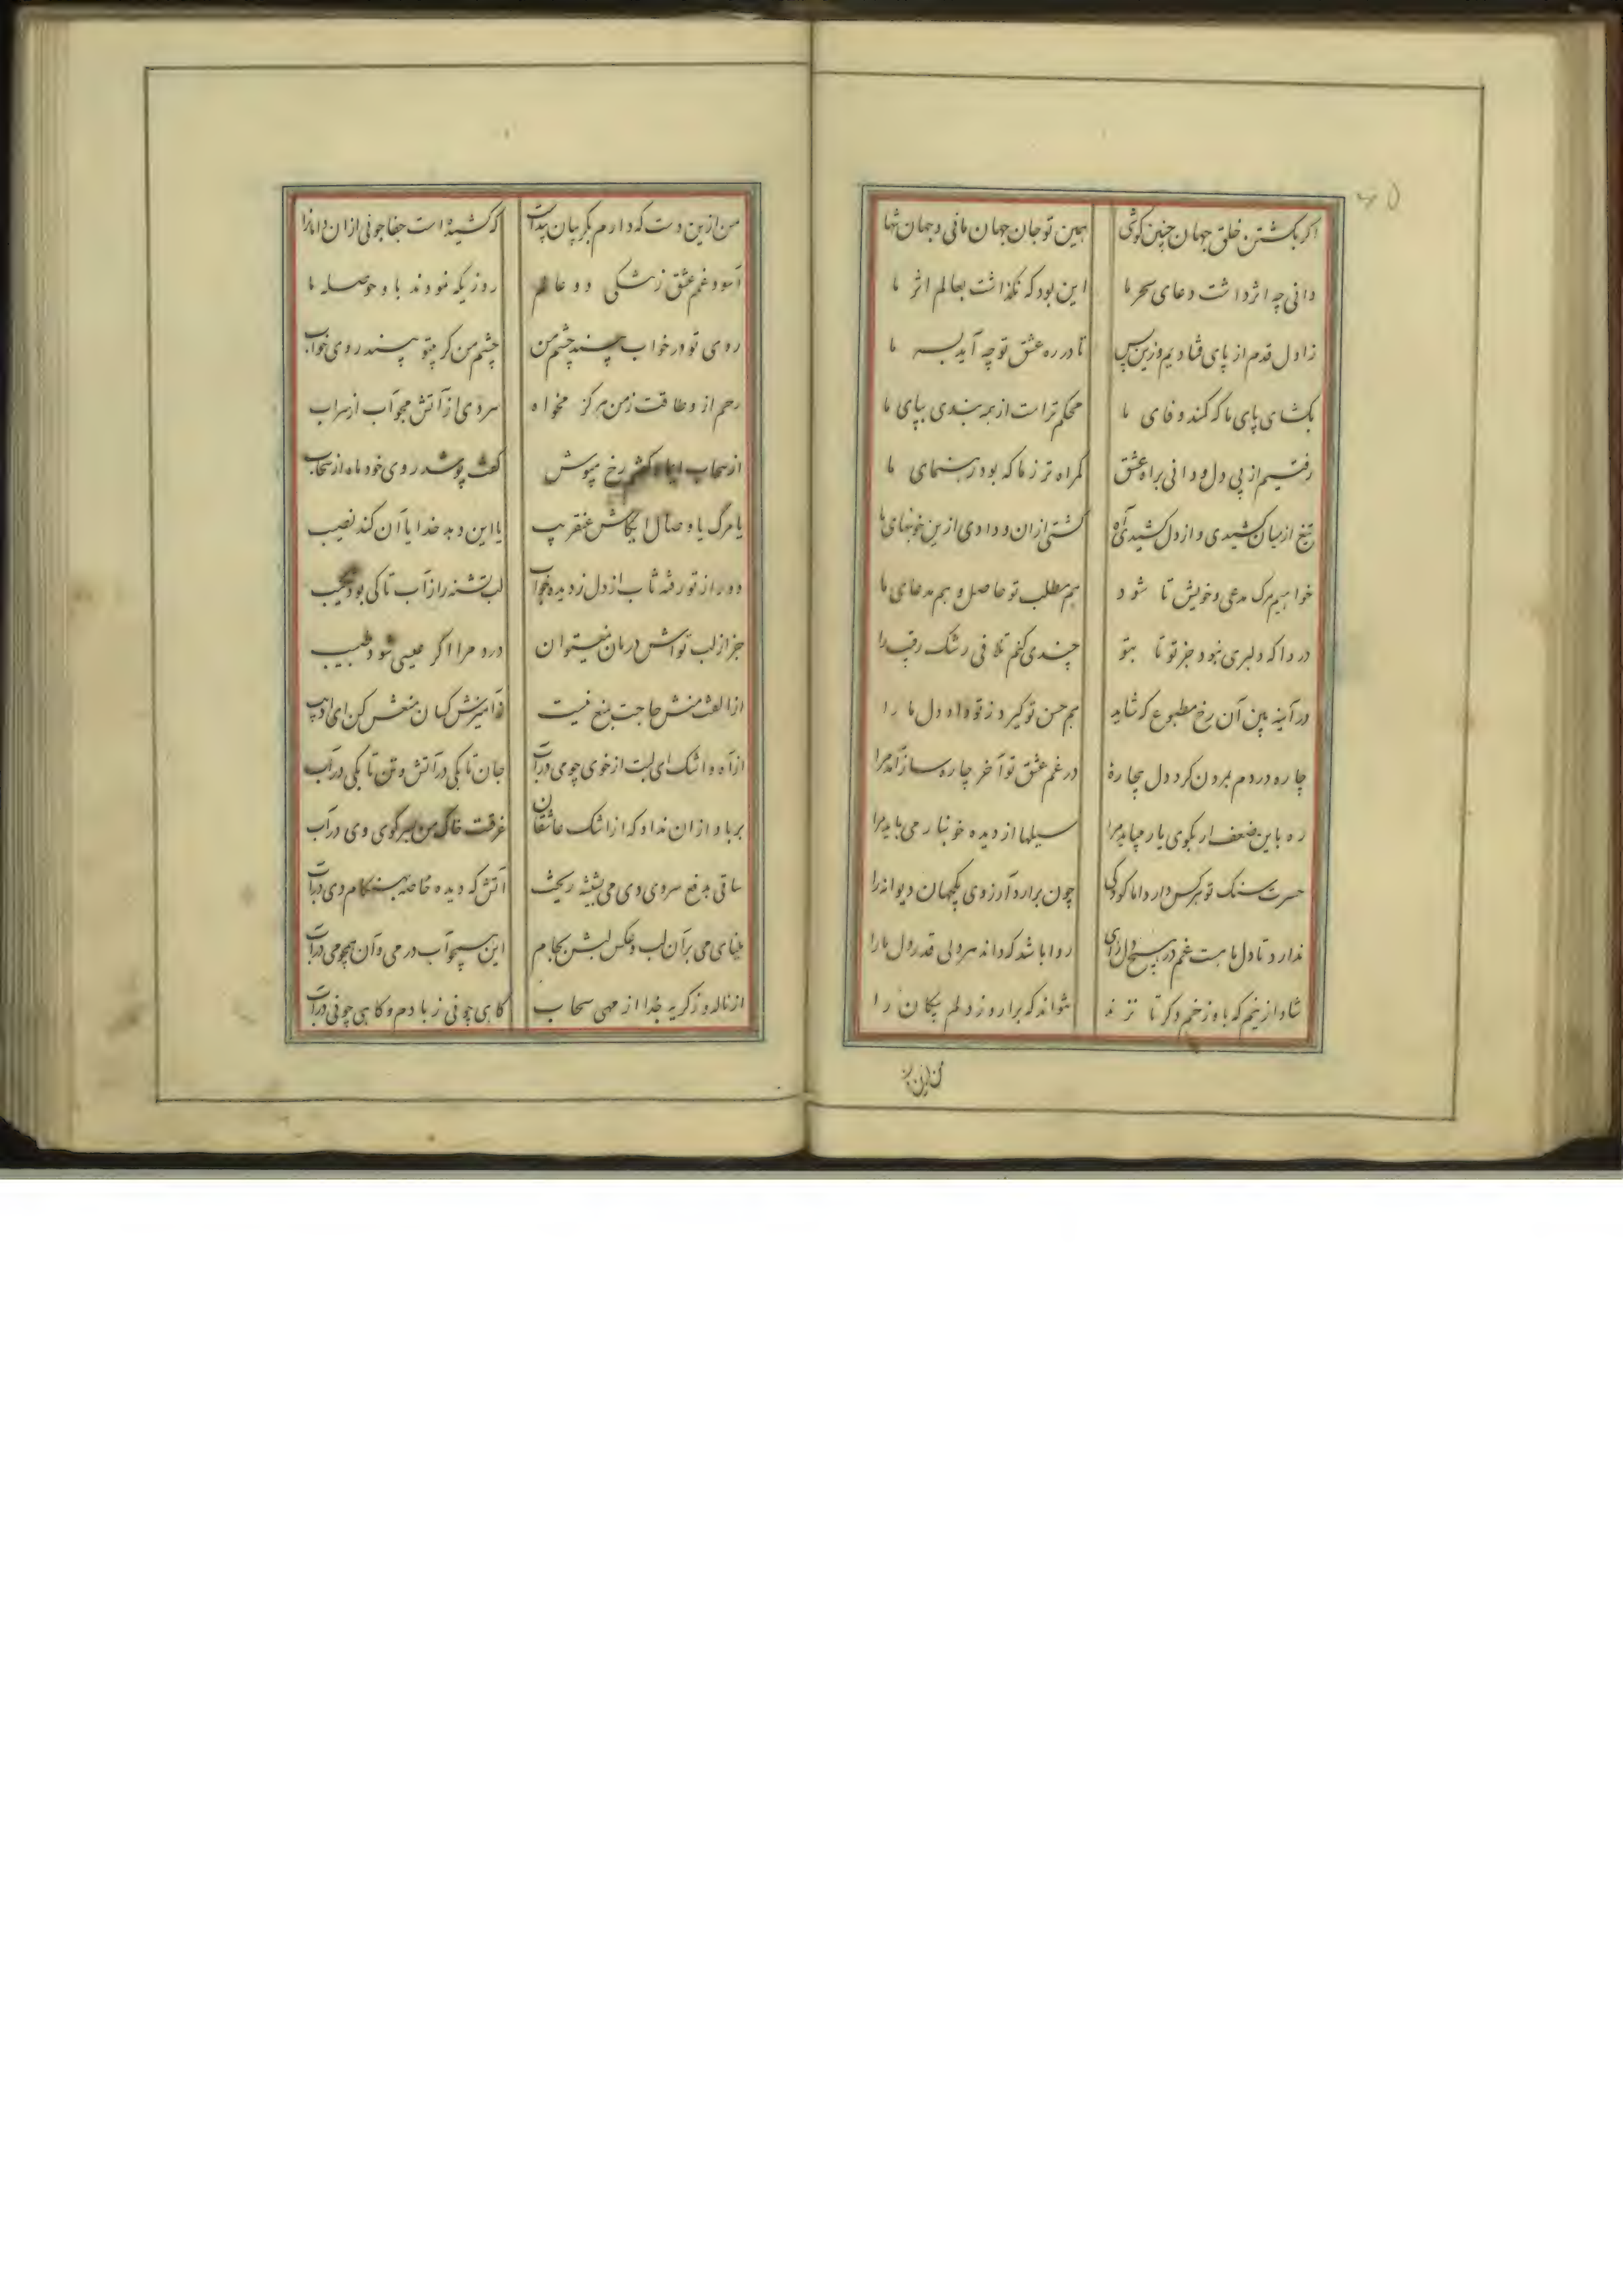 اگر بکشتن خلق جهان چنین کوشی همین تو جان جهان مانی و جهان تنها
دانی چه اثر داشت دعای سحر ما این بود که نگذاشت بعالم اثر ما
ز اول قدم از پای فتادیم وزین پس تا در ره عشق تو چه آید بسر ما
بگشای پای ما که کمند وفای ما محکم تر است از همه بندی بپای ما
رفتیم از پی دل و دانی براه عشق گمراه تر ز ما که بود رهنمای ما
تیغ از میان کشیدی و از دل کشیدم آه کشتی از آن و دادی ازین خونبهای ما
خواهیم مرگ مدعی و خویش تا شود هم مطلب تو حاصل و هم مدعای ما
دردا که دلبری نبود جز تو تا بتو چندی کنم تلافی رشک رقیب را
در آینه بین آن رخ مطبوع که شاید هم حسن تو گیرد ز تو داد دل ما را
چاره دردم برون کرد دل بیچارهٔ در غم عشق تو آخر چاره ساز آمد مرا
ره باین ضعف ار بکوی یار میباید مرا سیلها از دیده خونبار می باید مرا
حسرت سنگ تو هر کس دارد اما کودکی چون برارد آرزوی یکجهان دیوانه را
ندارد تا دل ما هست غم در هیچ دل جای روا باشد که داند هر دلی قدر دل ما را
شاد ازینم که باو زخم دگر تا نزند نتواند که برارد ز دلم پیکان را
من ازین دست که دارم بگریبان پیداست که کشیده است جفاجوئی از آن دامان را
آسود غم عشق ز تنگی دو عالم روزیکه نمودند باو حوصله ما
روی تو در خواب بیند چشم من چشم من گر بیتو بیند روی خواب
رحم ازو طاقت ز من هرگز مخواه سردی از آتش مجو آب از سراب
از سحاب رخ مپوش گفت پوشد روی خود ماه از سحاب
یا مرگ یا وصال ایکاش عنقریب یا این دهد خدا یا آن کند نصیب
دور از تو رفته تاب از دل ز دیده خواب لب تشنه را ز آب تا کی بود شکیب
جز از لب تواش درمان نمیتوان درد مرا اگر عیسی شود طبیب
از الفت منش حاجت بمنع نیست ز آمیزش کسان منعش کن ای ادیب
از آه و اشک ای لبت از خوی چو می در آب جان تا بکی در آتش و تن تا بکی در آب
بر باد از آن نداد که از اشک عاشقان غرقست خاک من بسر کوی وی در آب
ساقی بدفع سردی دی می بشیشه ریخت آتش که دیده خاصه بهنگام دی در آب
مینای می بر آن لب و عکس لبش بجام این همچو آب در می و آن همچو می در آب
از ناله و ز گریه جدا از مهی سحاب گاهی چو نی ز بادم و گاهی چو نی در آب